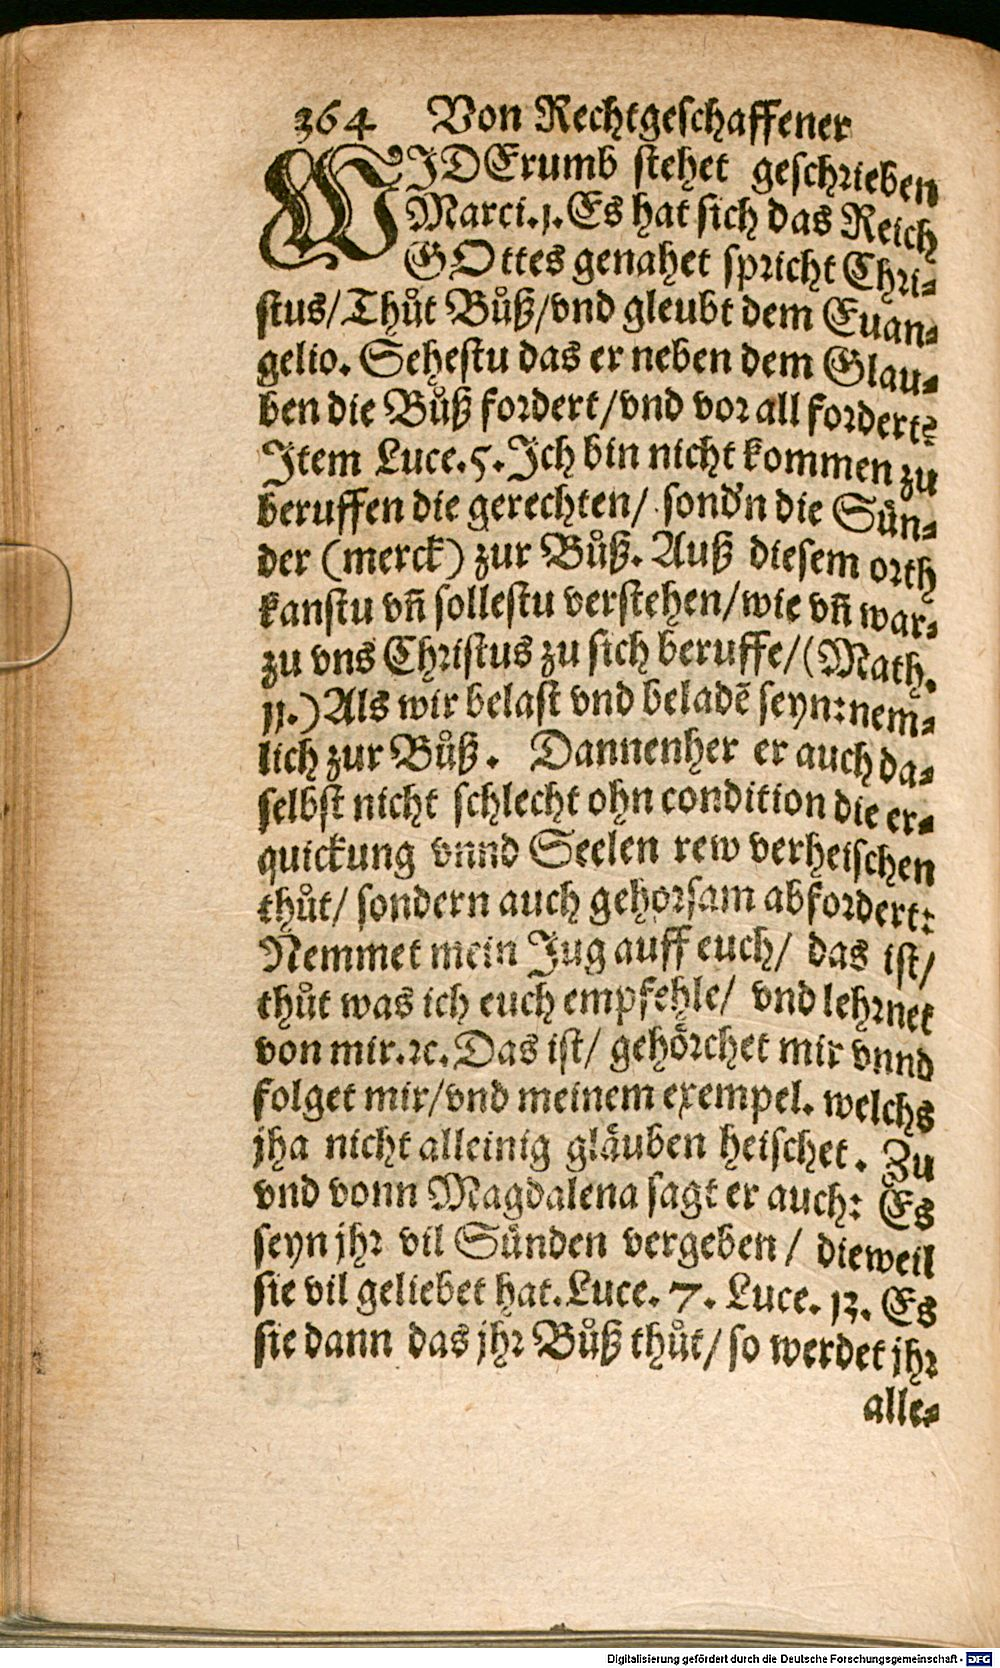 364 Von Rechtgeschaffener
WIDErumb stehet geschrieben
Marci. 1. Es hat sich das Reich
GOttes genahet spricht Chri-
stus/ Thůt Bůß/ vnd gleubt dem Euan-
gelio. Sehestu das er neben dem Glau-
ben die Bůß fordert/ vnd vor all fordert?
Item Luce. 5. Ich bin nicht kommen zu
beruffen die gerechten/ sond'n die Sün-
der (merck) zur Bůß. Auß diesem orth
kanstu vñ sollestu verstehen/ wie vñ war-
zu vns Christus zu sich beruffe/ (Math.
11.) Als wir belast vnd beladẽ seyn: nem-
lich zur Bůß. Dannenher er auch da-
selbst nicht schlecht ohn condition die er-
quickung vnnd Seelen rew verheischen
thůt/ sondern auch gehorsam abfordert:
Nemmet mein Jug auff euch/ das ist/
thůt was ich euch empfehle/ vnd lehrnet
von mir. ꝛc. Das ist/ gehörchet mir vnnd
folget mir/ vnd meinem exempel. welchs
jha nicht alleinig gläuben heischet. Zu
vnd vonn Magdalena sagt er auch: Es
seyn jhr vil Sünden vergeben/ dieweil
sie vil geliebet hat. Luce. 7. Luce. 13. Es
sie dann das jhr Bůß thůt/ so werdet jhr
alle-
Digitalisierung gefördert durch die Deutsche Forschungsgemeinschaft - DFG